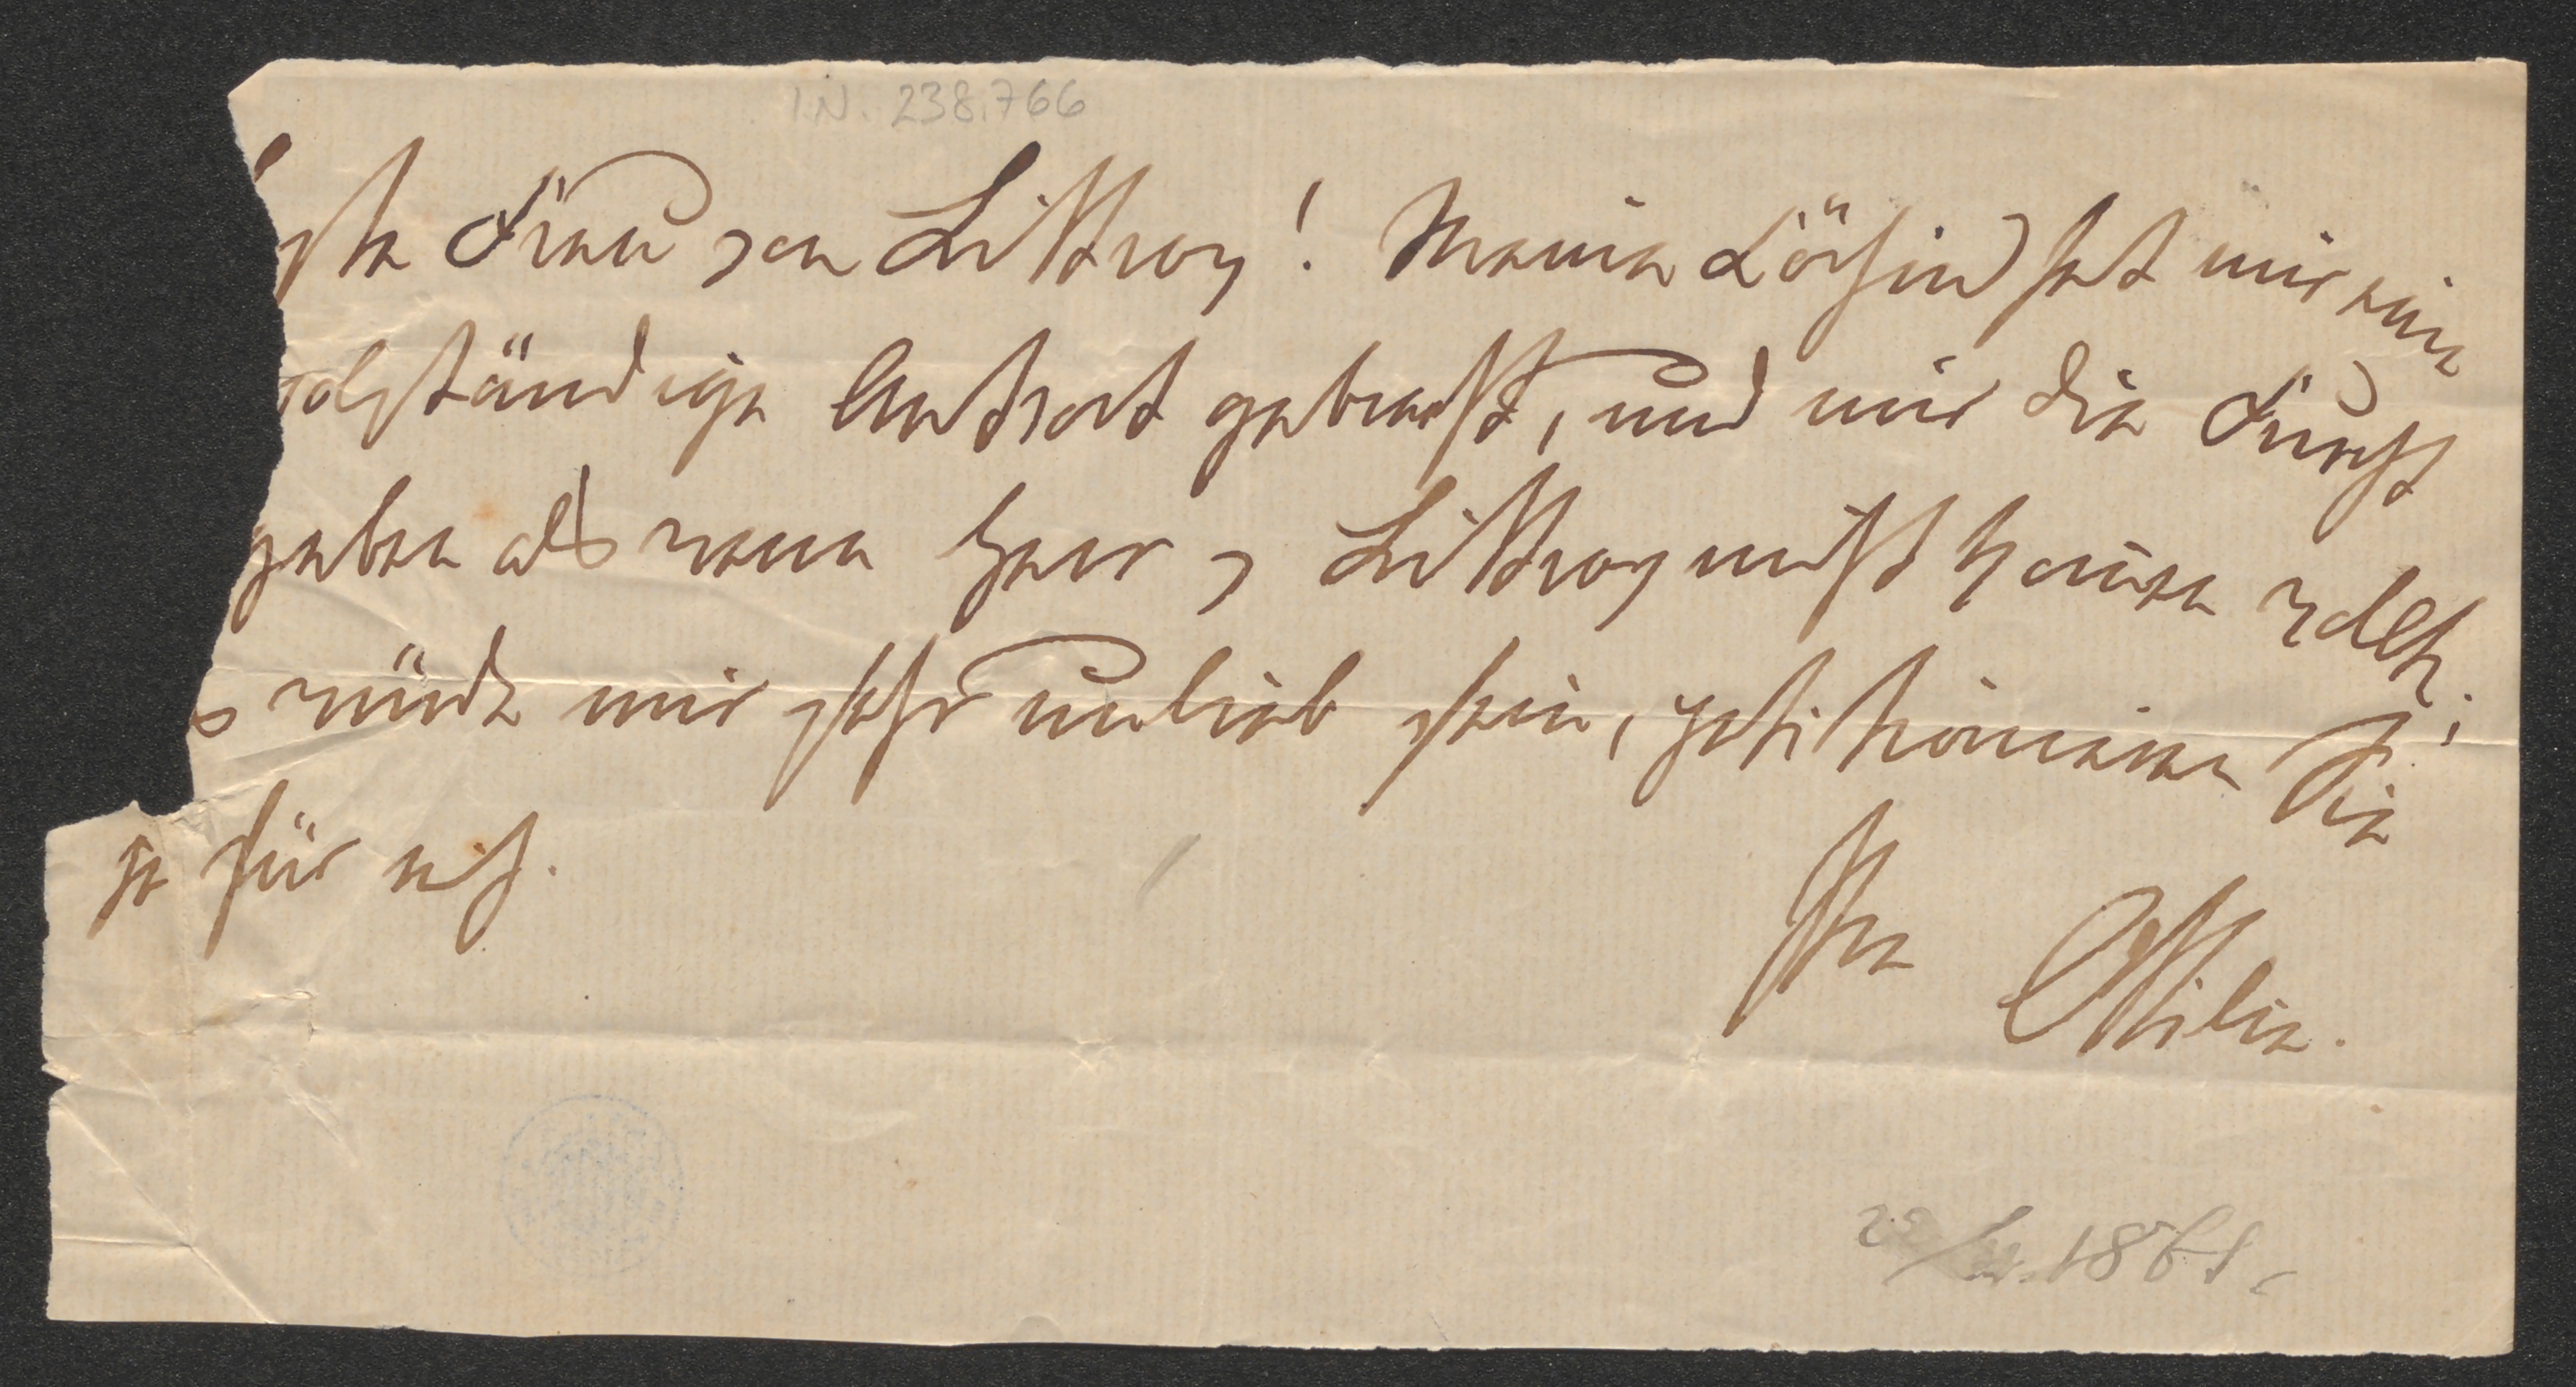 I.N. 238.766
ste Frau von Littrow! Meine Köchin hat mir eine
volständige Antwort gebracht, und mir die Furcht
geben als wenn Herr v Littrow nicht kom̄en wollte;
s würde mir sehr unlieb sein, petitioniren Sie
ja für mich.
Ihre Ottilie.
1861.